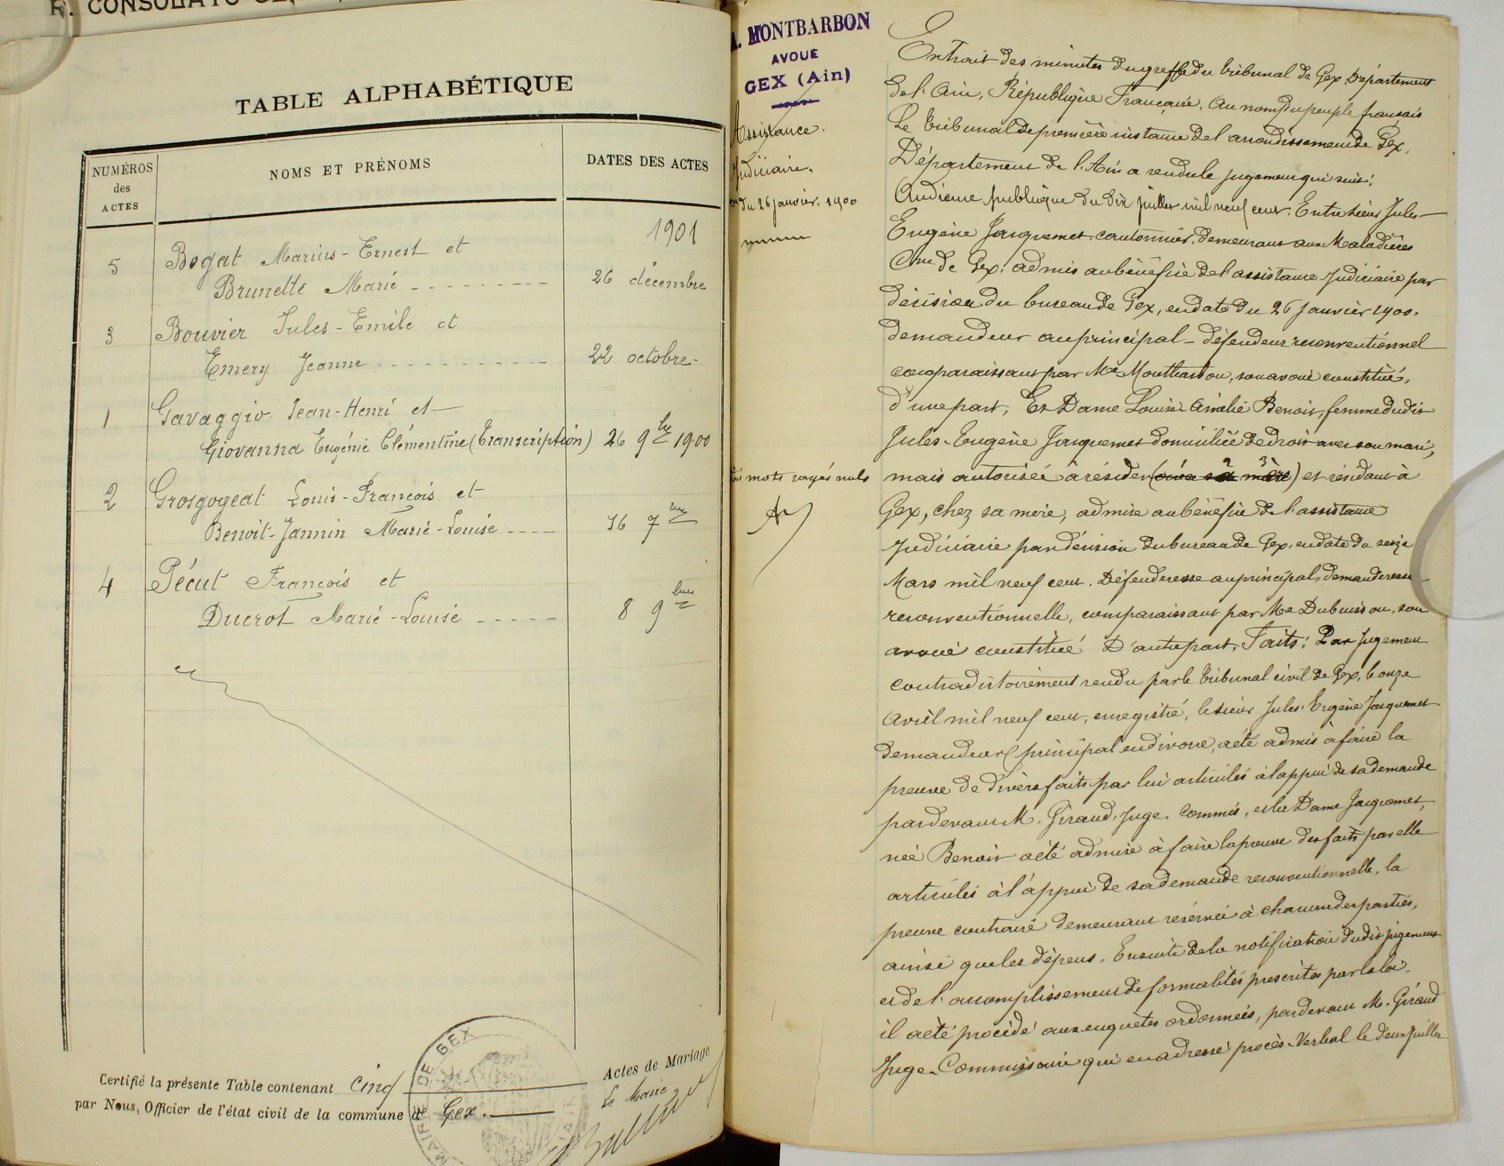 R. CONSOLATO
TABLE ALPHABÉTIQUE
NUMÉROS des ACTES
NOMS ET PRÉNOMS
DATES DES ACTES
1901
5 Bogat Marius-Ernest et
Brunette Marie 26 décembre
3 Bouvier Jules-Emile et
Emery Jeanne 22 octobre
1 Gavaggio Jean-Henri et
Giovanna Eugénie Clémentine (Transcription) 26 9bre 1900
2 Grosgogeat Louis-François et
Benoit-Jannin Marie-Louise 16 7bre
4 Pécut François et
Ducrot Marie-Louise 8 9bre
Certifié la présente Table contenant cinq Actes de Mariage
par Nous, Officier de l'état civil de la commune de Gex.
Le Maire
MAIRIE DE GEX
MONTBARBON
AVOUE
GEX (Ain)
Assistance
Judiciaire.
du 26 janvier. 1900
mots rayés nuls
Extrait des minutes du greffe du tribunal de Gex Département
de l'Ain, République Française. Au nom du peuple français
Le tribunal de première instance de l'arrondissement de Gex,
Département de l'Ain a rendu le jugement qui suit:
Audience publique du dix juillet mil neuf cent. Entre sieur Jules
Eugène Jacquemet cantonnier, demeurant aux Maladières
Cne de Gex, admis au bénéfice de l'assistance Judiciaire par
décision du bureau de Gex, en date du 26 janvier 1900.
demandeur au principal - défendeur reconventionnel
comparaissant par Me Montbarbon, son avoué constitué,
d'une part, Et Dame Louise Amélie Benoit, femme dudit
Jules-Eugène Jacquemet domiciliée de droit avec son mari,
mais autorisée à résider et résidant à
Gex, chez sa mère, admise au bénéfice de l'assistance
Judiciaire par décision du bureau de Gex, en date du seize
Mars mil neuf cent. Défenderesse au principal, demanderesse
reconventionnelle, comparaissant par Me Dubuisson, son
avoué constitué D'autre part. Faits: Par jugement
contradictoirement rendu par le tribunal civil de Gex, le onze
Avril mil neuf cent, enregistré, le sieur Jules Eugène Jacquemet
demandeur principal en divorce, a été admis à faire la
preuve de divers faits par lui articulés à l'appui de sa demande
par devant M. Giraud, Juge Commis, et la Dame Jacquemet,
née Benoit a été admise à faire la preuve des faits par elle
articulés à l'appui de sa demande reconventionnelle, la
preuve contraire demeurant réservée à chacune des parties,
ainsi que les dépens. Ensuite de la notification dudit jugement
et de l'accomplissement de formalités prescrites par la loi.
il a été procédé aux enquêtes ordonnées, par devant M. Giraud
Juge-Commissaire qui en a dressé procès-verbal le deux Juillet